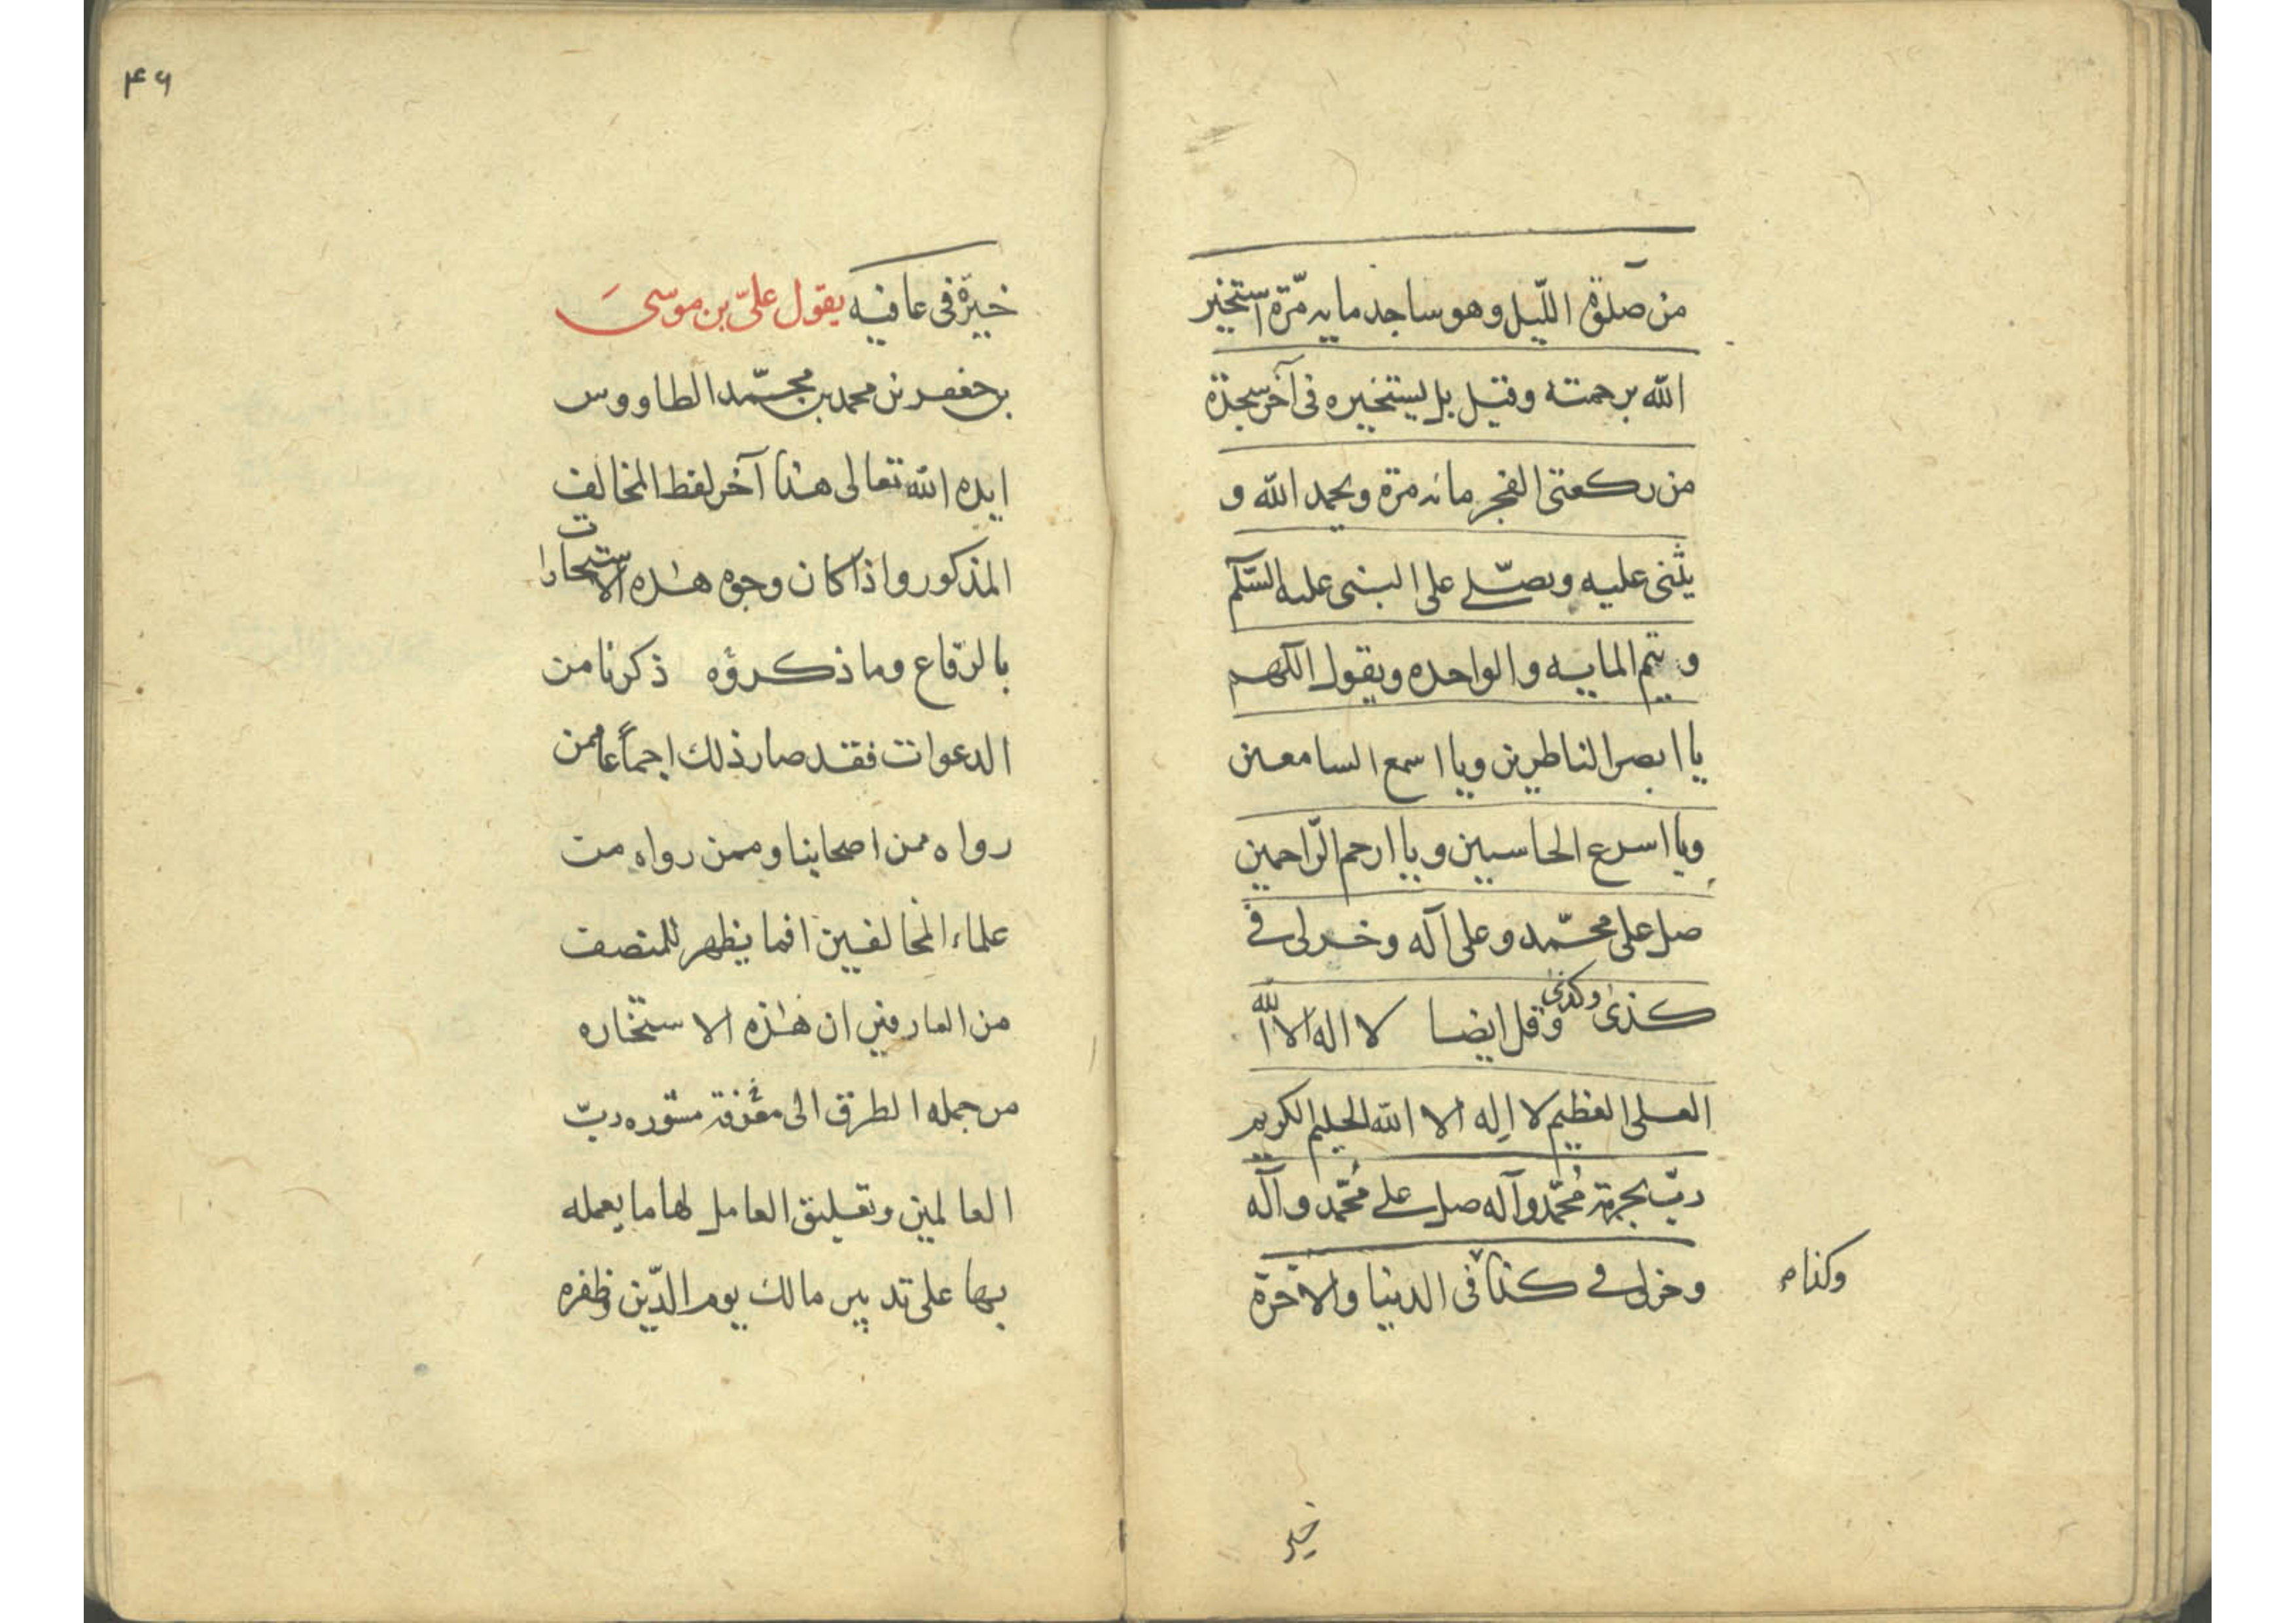 من صلوة اللّيل وهو ساجد مايه مرّة استخير
الله برحمته وقيل بل يستخيره فى آخر سجدة
من ركعتى الفجر مائه مرة ويحمد الله و
يثنى عليه ويصلّى على النبى عليه السّلم
ويتم المايه والواحده ويقول اللهم
يا ابصر الناظرين ويا اسمع السامعين
ويا اسرع الحاسبين ويا ارحم الرّاحمين
صل على محمّد وعلى آله وخر لى فى
كذى وكذى وقل ايضا لا اله الا الله
العلى العظيم لا اله الا الله الحليم الكريم
ربّ بحرمة محمّد وآله صل على محمّد وآله
وخر لى فى كذا فى الدنيا والاخرة
وكذا
خير
۴۶
خيرة فى عافيه يقول علىّ بن موسى
بن جعفر بن محمد بن محمّد الطاووس
ايده الله تعالى هذا آخر لفظ المخالف
المذكور واذا كان وجوه هذه الاستخارات
بالرّقاع وما ذكروه ذكرنا من
الدعوات فقد صار ذلك اجماعا ممن
رواه ممن اصحابنا وممن رواه من
علماء المخالفين افما يظهر للمنصف
من العارفين ان هذه الاستخاره
من جمله الطرق الى معرفة مشوره ربّ
العالمين وتعليق العامل لها ما يعمله
بها على تدبير مالك يوم الدّين وظفره